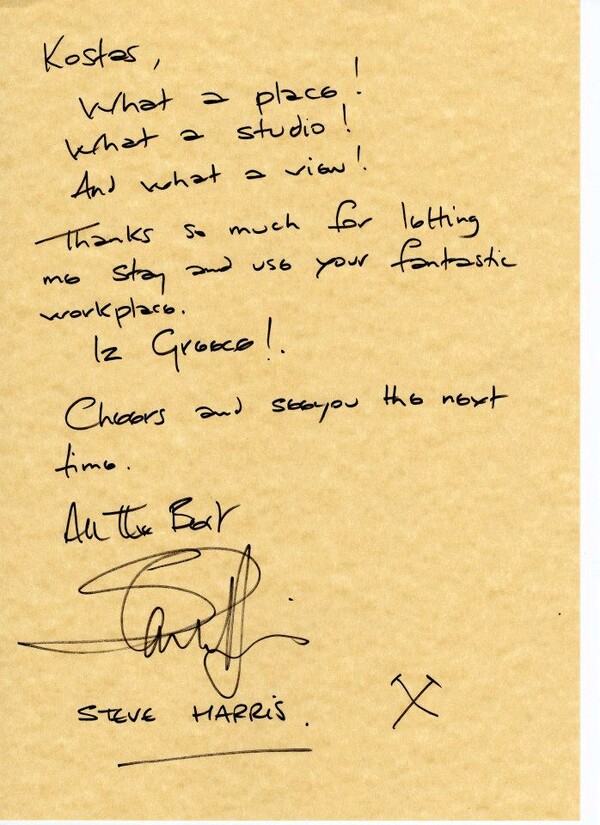 Kostas,
What a place!
What a studio!
And what a view!
Thanks so much for letting
me stay and use your fantastic
workplace.
Iz Greece!.
Cheers and see you the next
time.
All the Best
STEVE HARRIS.